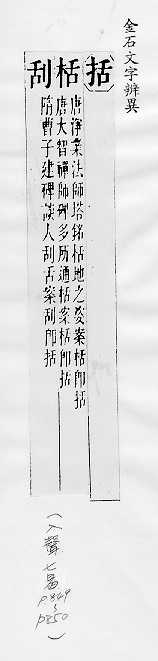 金石文字辨異
括
栝 唐淨業法師塔銘栝地之發案栝即括
唐大智禪師碑多所通栝案栝即括
刮 隋曹子建碑談人刮舌案刮即括
(入聲七曷
p849
~
p850)